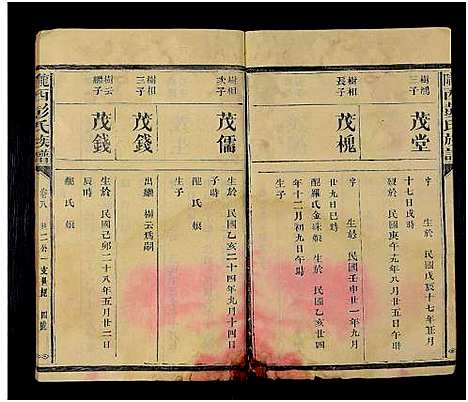 隴西彭氏族譜
樹鴻
三子
茂堂
字 生於 民國戊辰十七年丑月
十七日戌時
民國庚午九年八月廿五日午時
樹相
長子
茂槐
字 生於 民國壬申廿一年九月
廿九日巳時
配羅氏金珠娘 生於 民國乙亥廿四
年十二月初九日午時
生子
樹相
次子
茂儒
生於 民國乙亥二十四年九月十四日
配 氏 娘
生子
樹相
三子
茂錢
出繼 樹云為嗣
樹云
繼子
茂錢
生於 民國己卯二十八年五月廿二日
辰時
配 氏 娘
隴西彭氏族譜
卷八